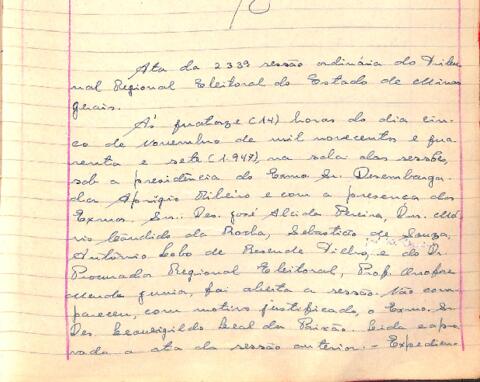 Ata da 2339 sessão ordinária do Tribu-
nal Regional Eleitoral do Estado de Minas
Gerais.
Ás quatorze (14) horas do dia cin-
co de novembro de mil novecentos e qua-
renta e sete (1.947), na sala das sessões,
sob a presidência do Exmo. Sr. Desembarga-
dor Aprigio Ribeiro e com a presença dos
Exmos. Srs. Des. José Alcides Pereira, Drs. Má-
rio Cândido da Rocha, Sebastião de Souza,
Antônio Lobo de Resende Filho, e do Dr.
Procurador Regional Eleitoral, Prof. Onofre
Mendes Junior, foi aberta a sessão. Não com-
pareceu, com motivo justificado, o Exmo. Sr.
Des. Leovigildo Leal da Paixão. Lida e apro-
vada a ata da sessão anterior. - Expedien-